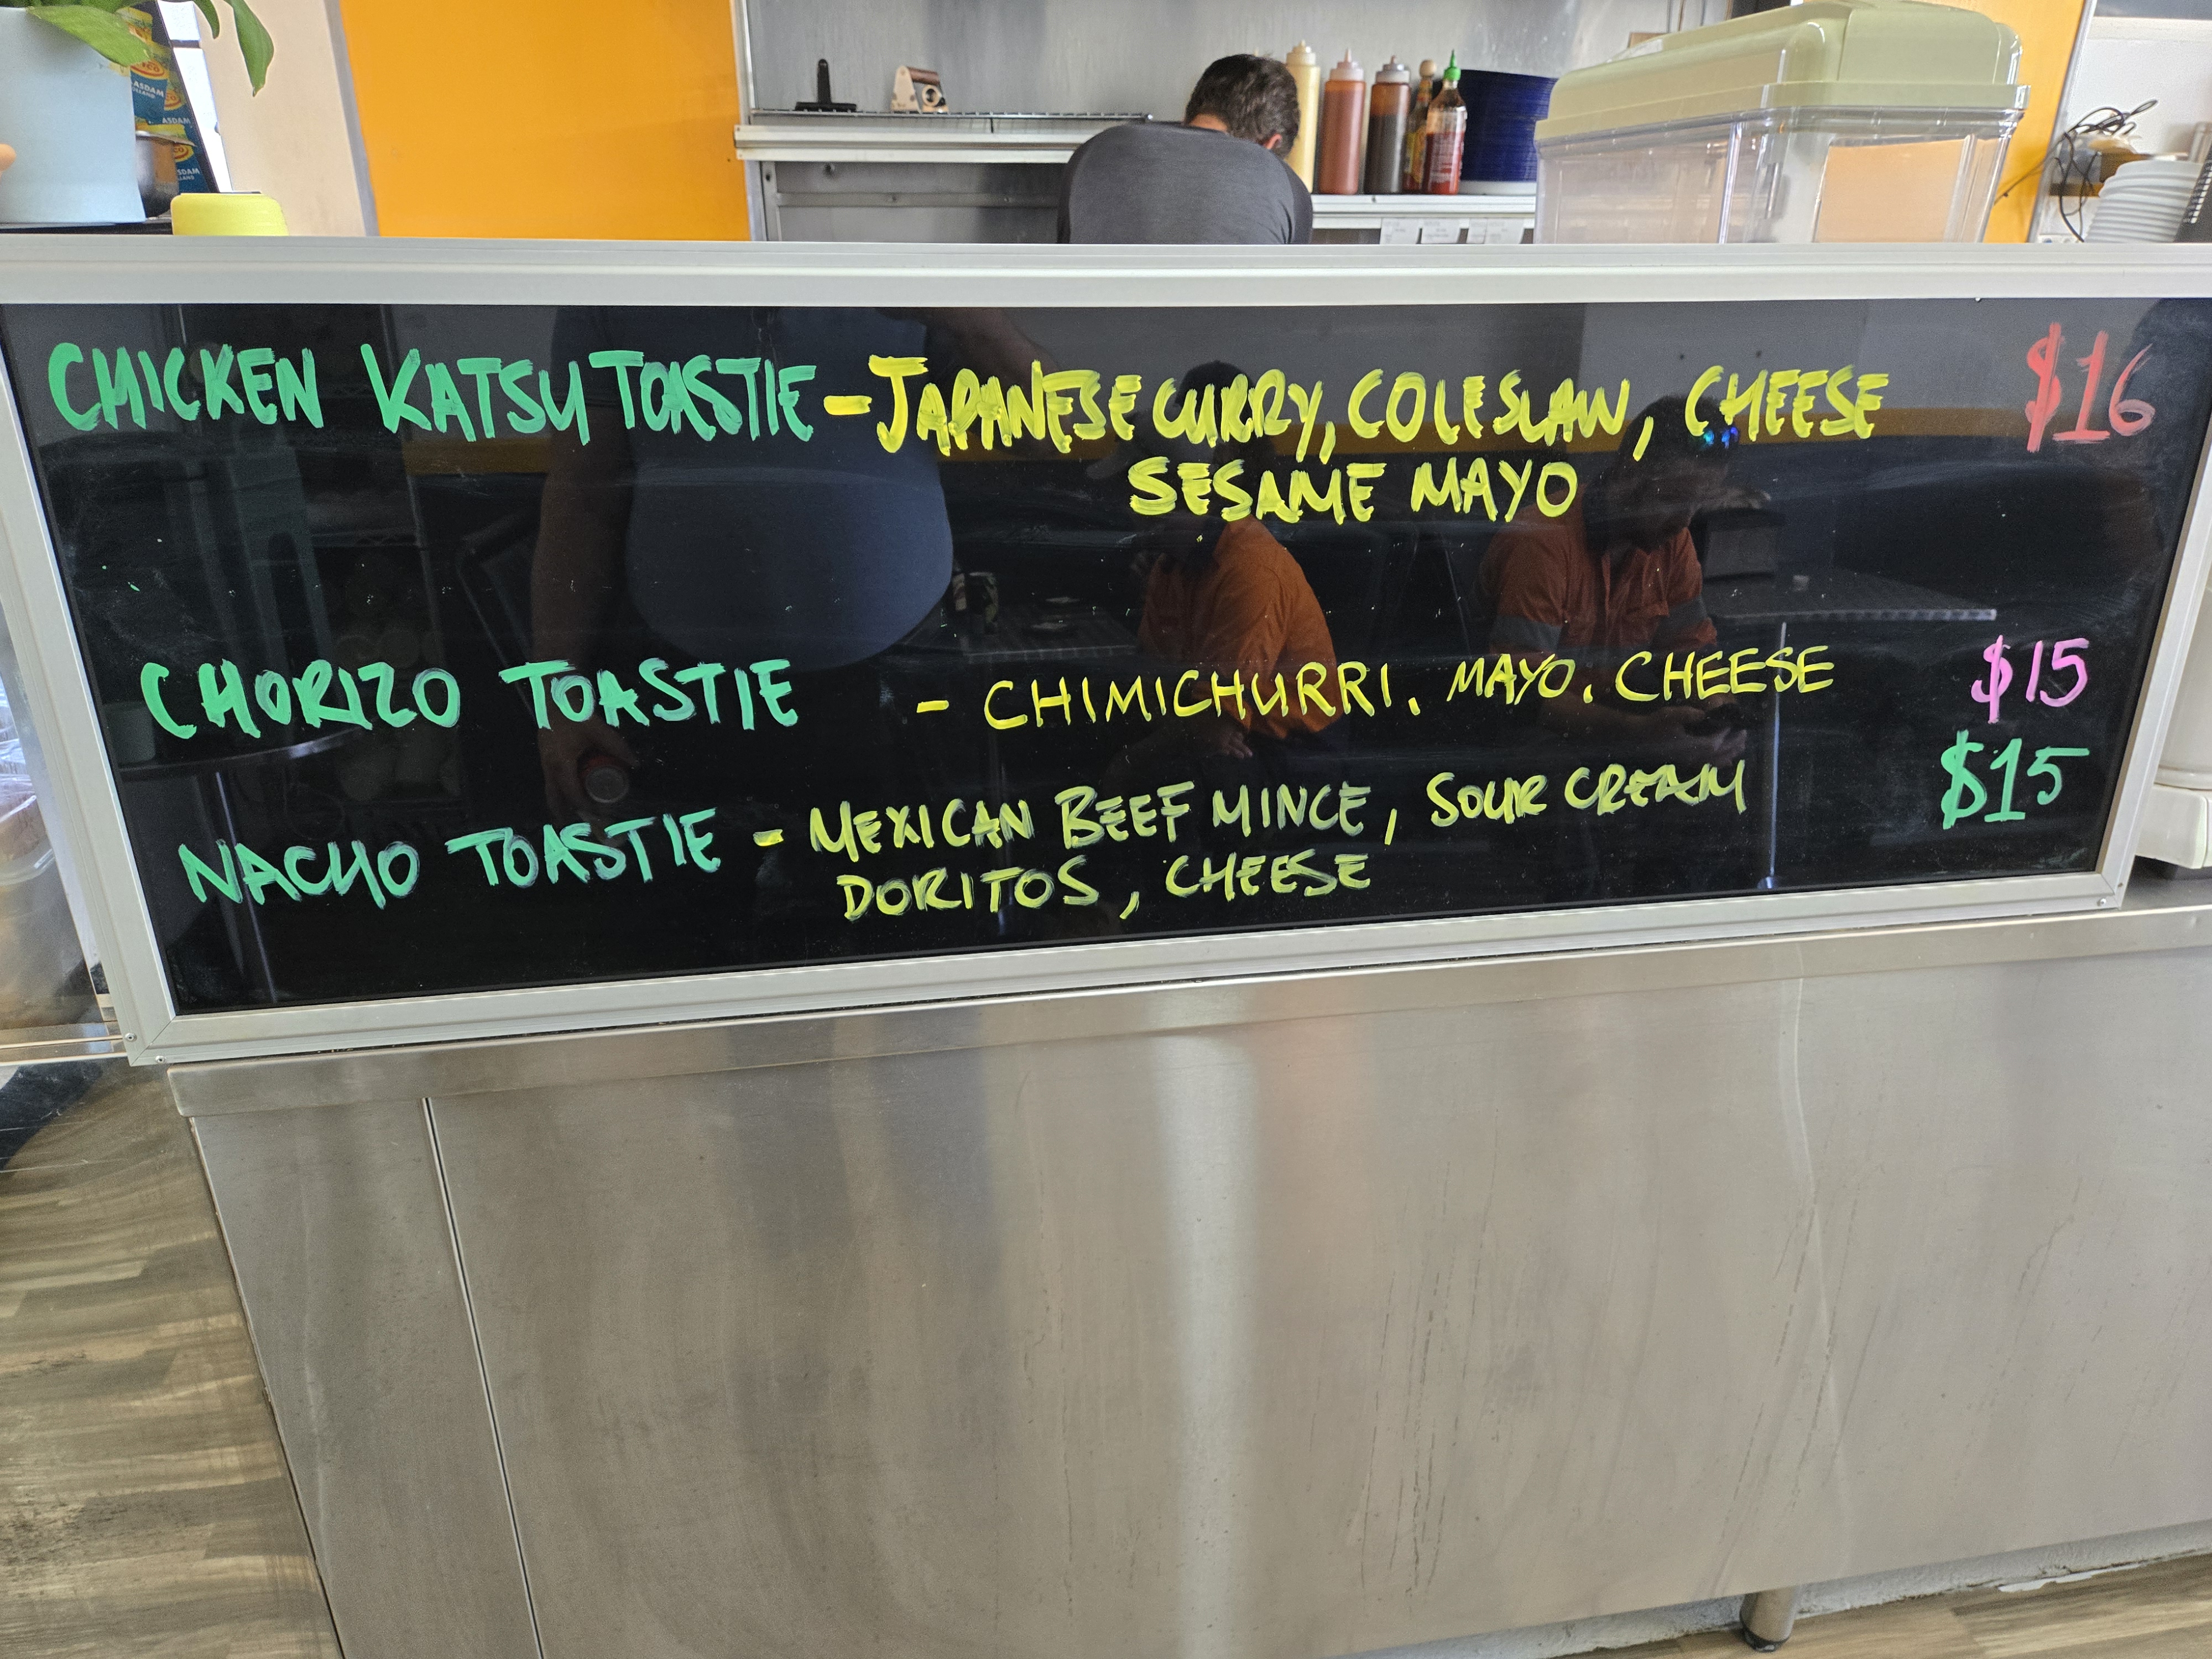 CHICKEN KATSU TOASTIE - JAPANESE CURRY, COLESLAW, CHEESE $16
SESAME MAYO
CHORIZO TOASTIE - CHIMICHURRI. MAYO. CHEESE $15
NACHO TOASTIE - MEXICAN BEEF MINCE, SOUR CREAM $15
DORITOS, CHEESE